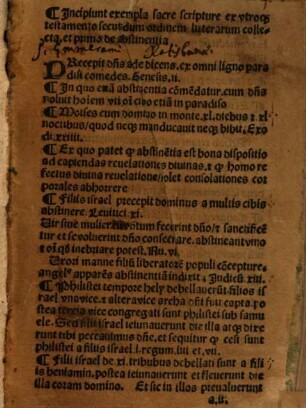 ¶Incipiunt exempla sacre scripture ex vtroqꝫ
testamento secundum ordinem literarum colle-
cta, et primo de Abstinentia
PRecepit dñs ade dicens. ex omni ligno para
disi comedes. Genesis. ii.
¶In quo exēa abstinentia cōmēdatur. cum dñs
voluit hoiem vti oī cibo etiā in paradiso
¶Moises cum domino in monte. xl. diebus ⁊ xl
noctibus/quod neqꝫ manducauit neqꝫ bibit. Exo
di. xxiiii.
¶Ex quo patet ꝙ abstinētia est bona dispositio
ad capiendas reuelationes diuinas. ⁊ ꝙ homo re
fectus diuina reuelatione/solet consolationes cor
porales abhorrere
¶Filiis israel precepit dominus a multis cibis
abstinere. Leuitici. xi.
Vir siue mulier votum fecerint dño/⁊ sanctifice
tur et se voluerint dño consecrare. abstineant vino
⁊ oī qd inebriare potest. Nu. vi.
Vxori manue filiū liberatorē populi cōcepture.
angelꝰ apparēs abstinentiā indixit. Judicū. xiii.
¶Philistei tempore hely debellauerūt filios is
rael vna vice. ⁊ altera vice archa dñi fuit capta. po
stea tercia vice congregati sunt philistei sub samu
ele. Sed filii israel ieiunauerunt die illa atqꝫ dixe
runt tibi peccauimus dñe, et sequitur ꝙ cesi sunt
philistei a filiis israel. i. regum. iiii. et vii.
¶Filii israel de xi. tribubus debellati sunt a filii
is beniamin. postea ieiunauerunt et fleuerunt die
illa coram domino. Et sic in illos preualuerunt
a.ii.